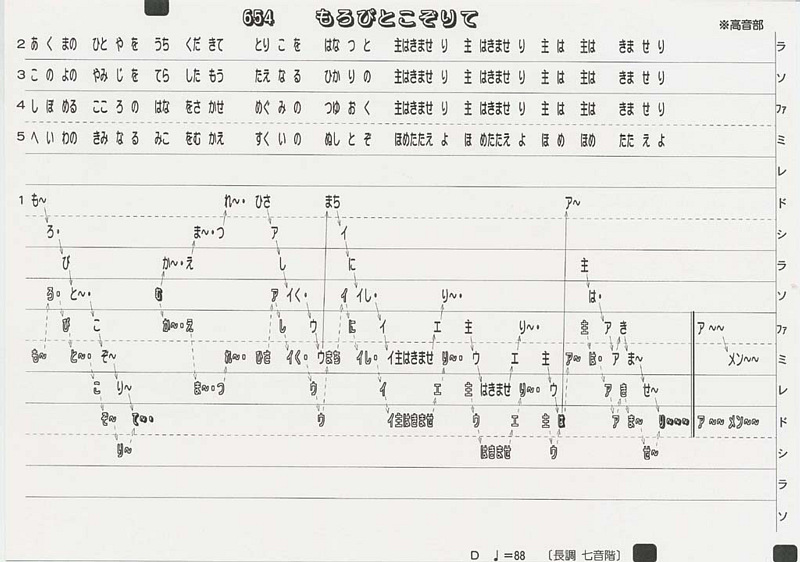 654 もろびとこぞりて
※高音部
2 あくまの ひとやを うち くだきて とりこを はなつと 主はきませ り 主 はきませ り 主 は 主は きま せり ラ
3 このよの やみじを てらし たもう たえなる ひかりの 主はきませ り 主 はきませ り 主 は 主は きま せり ソ
4 しぼめる こころの はな をさかせ めぐみの つゆおく 主はきませ り 主 はきませ り 主 は 主は きま せり ファ
5 へいわの きみなる みこ をむかえ すくいの ぬしとぞ ほめたたえ よ ほ めたたえ よ ほ め ほめ たた えよ ミ
レ
1 も～ れ～・ ひさ まち ア～ ド
ろ・ ま～・つ ア イ シ
び か～・え し に 主 ラ
ろ・ と～・ む ア イく・ イ イし・ り～・ は・ ソ
び こ か～・え し ウ に イ エ 主 り～・ 主 ア き ア～～ ファ
も～ と～・ ぞ～ れ～・ ひさ イく・ ウまち イし・ イ主はきませ り～・ ウ エ 主 ア～ は・ ア ま～ メン～～ ミ
こ り～ ま～・つ ウ イ エ 主 はきませ り～・ ウ ア き せ～ レ
ぞ～ て～・・ ウ イ主はきませ ウ エ 主 は ア ま～ り～～～ ア～～ メン～～ ド
り～ はきませ ウ せ～ シ
ラ
ソ
D ♩=88 〔長調 七音階〕